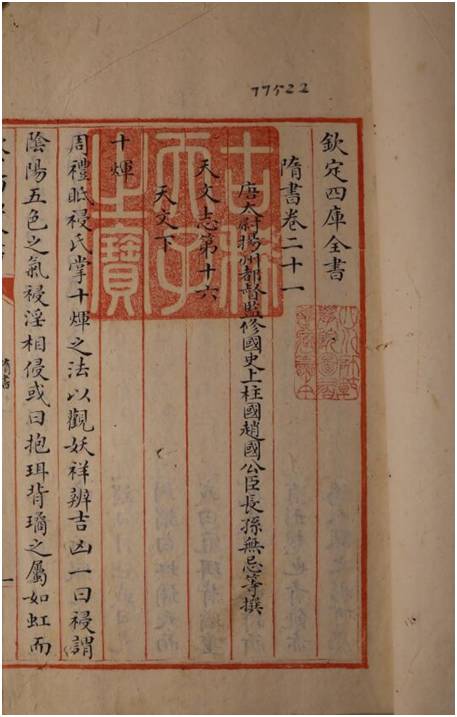 77522
欽定四庫全書
隋書卷二十一
唐太尉揚州都督監修國史上柱國趙國公臣長孫無忌等撰
天文志第十六
天文下
十煇
周禮眡祲氏掌十煇之法以觀妖祥辨吉凶一曰祲謂
陰陽五色之氣祲淫相侵或曰抱珥背璚之屬如虹而
古稀
天子
之寶
隋書